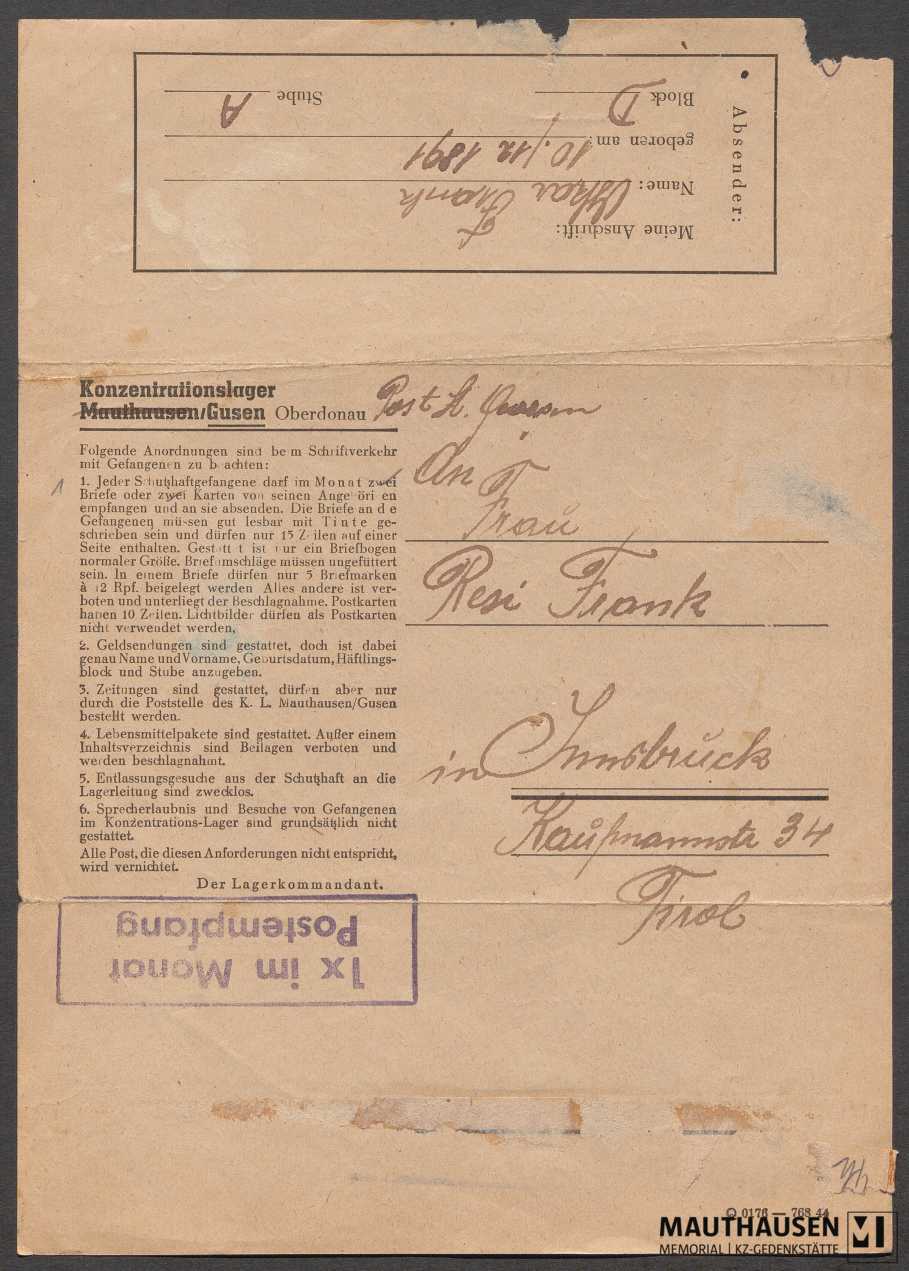 Absender:
Meine Anschrift:
Name: Oskar Frank
geboren am: 10./12 1891
Block D Stube A
Konzentrationslager
Mauthausen/Gusen Oberdonau Post St. Georgen
Folgende Anordnungen sind be m Schriftverkehr
mit Gefangenen zu b achten:
1
1. Jeder Schutzhaftgefangene darf im Monat zwei
Briefe oder zwei Karten von seinen Ange öri en
empfangen und an sie absenden. Die Briefe an d e
Gefangenen müssen gut lesbar mit Tinte ge-
schrieben sein und dürfen nur 15 Zeilen auf einer
Seite enthalten. Gestatt t ist nur ein Briefbogen
normaler Größe. Briefumschläge müssen ungefüttert
sein. In einem Briefe dürfen nur 5 Briefmarken
à 12 Rpf. beigelegt werden Alles andere ist ver-
boten und unterliegt der Beschlagnahme. Postkarten
haben 10 Zeilen. Lichtbilder dürfen als Postkarten
nicht verwendet werden.
2. Geldsendungen sind gestattet, doch ist dabei
genau Name und Vorname, Geburtsdatum, Häftlings-
block und Stube anzugeben.
3. Zeitungen sind gestattet, dürfen aber nur
durch die Poststelle des K. L. Mauthausen/Gusen
bestellt werden.
4. Lebensmittelpakete sind gestattet. Außer einem
Inhaltsverzeichnis sind Beilagen verboten und
werden beschlagnahmt.
5. Entlassungsgesuche aus der Schutzhaft an die
Lagerleitung sind zwecklos.
6. Sprecherlaubnis und Besuche von Gefangenen
im Konzentrations-Lager sind grundsätzlich nicht
gestattet.
Alle Post, die diesen Anforderungen nicht entspricht,
wird vernichtet.
Der Lagerkommandant.
An
Frau
Resi Frank
in Innsbruck
Kaufmannstr 34
Tirol
1x im Monat
Postempfang
0176 — 768 44
MAUTHAUSEN
MEMORIAL | KZ-GEDENKSTÄTTE